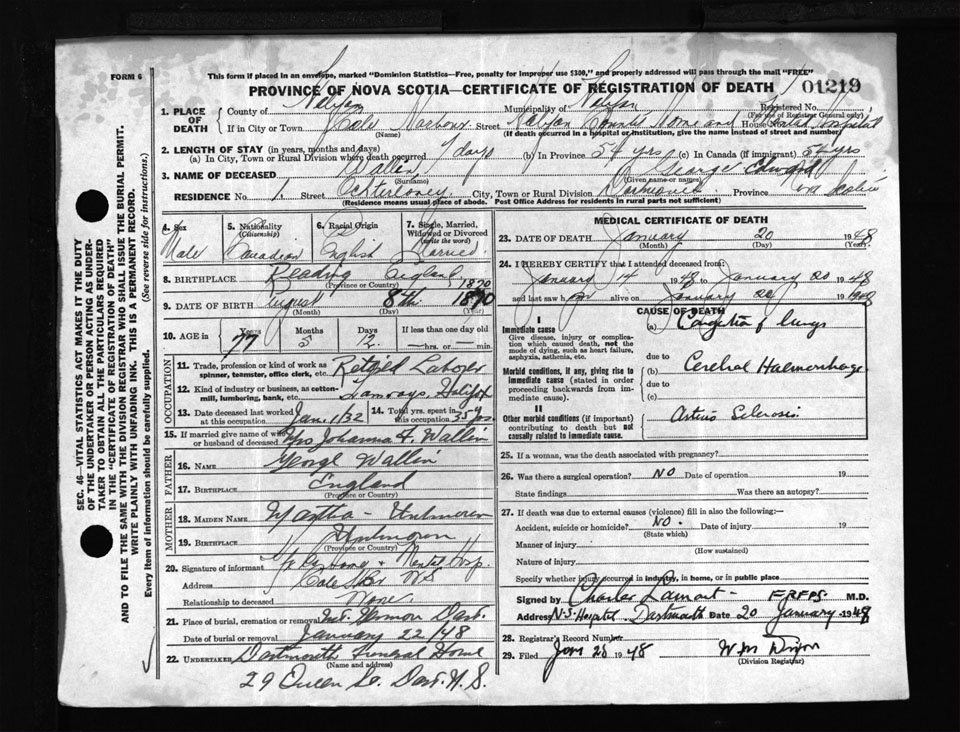 FORM 6
This form if placed in an envelope, marked "Dominion Statistics—Free, penalty for improper use $300," and properly addressed will pass through the mail "FREE"
PROVINCE OF NOVA SCOTIA—CERTIFICATE OF REGISTRATION OF DEATH 01219
1. PLACE OF DEATH County of Halifax Municipality of Halifax Registered No.
(For use of Registrar General only)
If in City or Town Cole Harbour Street Halifax County Home and Mental Hospital House No.
(Name) (If death occurred in a hospital or institution, give the name instead of street and number)
2. LENGTH OF STAY (in years, months and days)
(a) In City, Town or Rural Division where death occurred 7 days (b) In Province 54 yrs (c) In Canada (if immigrant) 54 yrs
3. NAME OF DECEASED Wallin George Edward
(Surname) (Given name or names)
RESIDENCE No. 1 Street City, Town or Rural Division Dartmouth Province Nova Scotia
(Residence means usual place of abode. Post Office Address for residents in rural parts not sufficient)
4. Sex 5. Nationality (Citizenship) 6. Racial Origin 7. Single, Married, Widowed or Divorced (write the word)
Male Canadian English Married
8. BIRTHPLACE Reading England
(Province or Country) 1870
9. DATE OF BIRTH August 8th 1870
(Month) (Day) (Year)
10. AGE in Years Months Days If less than one day
77 5 12 hrs. or min.
OCCUPATION
11. Trade, profession or kind of work as spinner, teamster, office clerk, etc. Retired Laborer
12. Kind of industry or business, as cotton-mill, lumbering, bank, etc. Tramways, Halifax
13. Date deceased last worked at this occupation Jan. 1/32 14. Total yrs. spent in this occupation 35 yrs.
15. If married give name of wife or husband of deceased Mrs Johanna F. Wallin
FATHER
16. NAME George Wallin
17. BIRTHPLACE England
(Province or Country)
MOTHER
18. MAIDEN NAME Martha - Unknown
19. BIRTHPLACE Unknown
(Province or Country)
20. Signature of informant Home & Mental Hosp.
Address Cole Hbr N.S
Relationship to deceased None
21. Place of burial, cremation or removal Mt. Hermon Dart.
Date of burial or removal January 22/48
22. UNDERTAKER Dartmouth Funeral Home
(Name and address)
29 Queen St. Dart. N.S.
MEDICAL CERTIFICATE OF DEATH
23. DATE OF DEATH January 20 1948
(Month) (Day) (Year)
24. I HEREBY CERTIFY that I attended deceased from:
January 14 1948 to January 20 1948
and last saw him alive on January 20 1948
CAUSE OF DEATH
I
Immediate cause (a) Congestion of lungs
Give disease, injury or complication which caused death, not the mode of dying, such as heart failure, asphyxia, asthenia, etc.
due to
Morbid conditions, if any, giving rise to immediate cause (stated in order proceeding backwards from immediate cause). (b) Cerebral Haemorrhage
due to
(c)
II
Other morbid conditions (if important) contributing to death but not causally related to immediate cause. Arterio Sclerosis
25. If a woman, was the death associated with pregnancy?
26. Was there a surgical operation? NO Date of operation 19
State findings Was there an autopsy?
27. If death was due to external causes (violence) fill in also the following:—
Accident, suicide or homicide? NO. Date of injury 19
(State which)
Manner of injury
(How sustained)
Nature of injury
Specify whether injury occurred in industry, in home, or in public place
Signed by Charles Lamont - FRFPS M.D.
Address N.S. Hospital, Dartmouth Date 20 January 1948
28. Registrar's Record Number
29. Filed Jan 28 1948 W.M. Dixon
(Division Registrar)
SEC. 46—VITAL STATISTICS ACT MAKES IT THE DUTY
OF THE UNDERTAKER OR PERSON ACTING AS UNDERTAKER TO OBTAIN ALL THE PARTICULARS REQUIRED
IN THE "CERTIFICATE OF REGISTRATION OF DEATH"
AND TO FILE THE SAME WITH THE DIVISION REGISTRAR WHO SHALL ISSUE THE BURIAL PERMIT.
WRITE PLAINLY WITH UNFADING INK. THIS IS A PERMANENT RECORD.
Every item of information should be carefully supplied. (See reverse side for instructions).